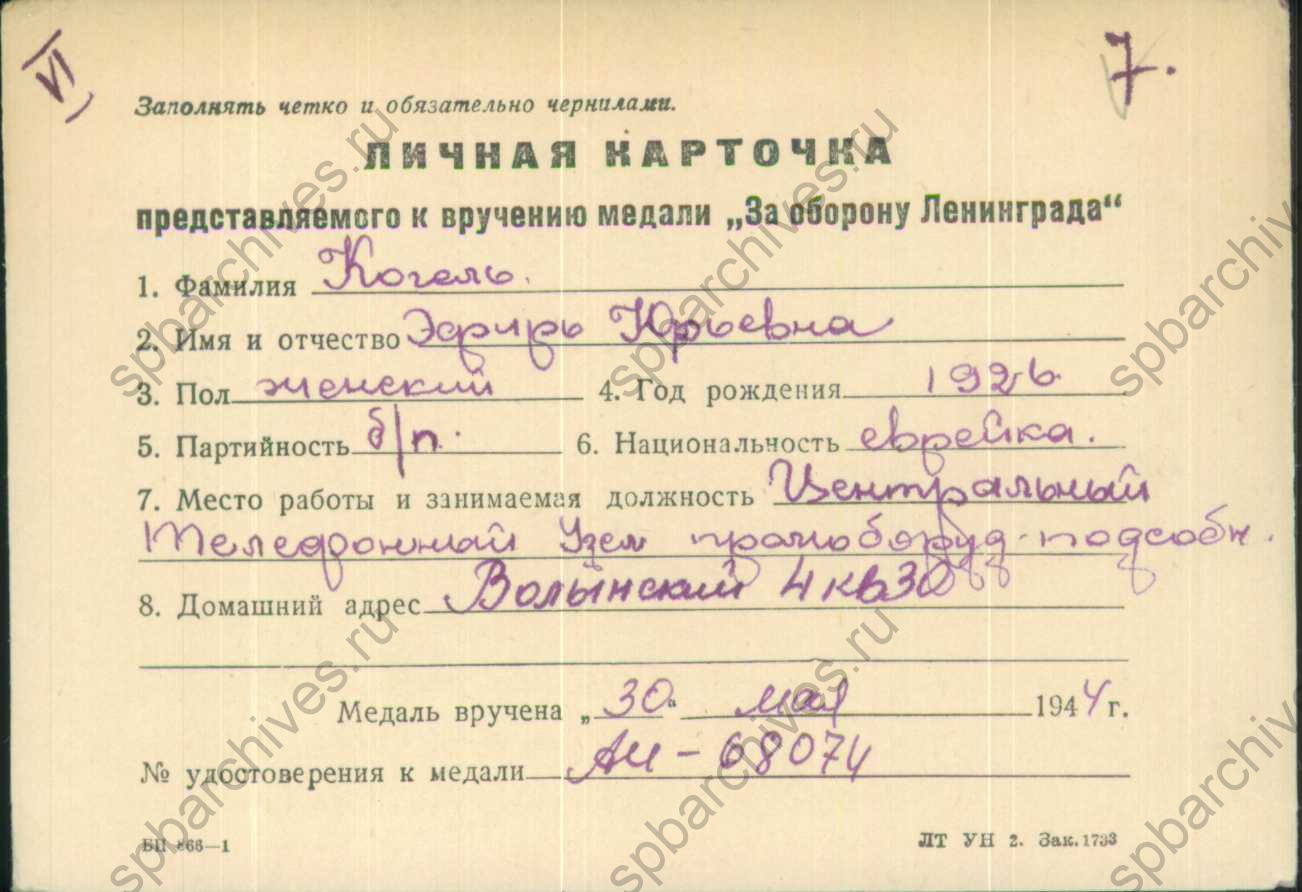 VI
7.
Заполнять четко и обязательно чернилами.
ЛИЧНАЯ КАРТОЧКА
представляемого к вручению медали „За оборону Ленинграда“
1. Фамилия Когель.
2. Имя и отчество Эсфирь Юрьевна
3. Пол женский 4. Год рождения 1926
5. Партийность б/п. 6. Национальность еврейка.
7. Место работы и занимаемая должность Центральный
Телефонный Узел подсобн.
8. Домашний адрес Волынский 4 кв 30
Медаль вручена „30“ мая 1944 г.
№ удостоверения к медали АИ – 68074
БП 866—1 ЛТ УН 2. Зак. 1733
spbarchives.ru
spbarchives.ru
spbarchives.ru
spbarchives.ru
spbarchives.ru
spbarchives.ru